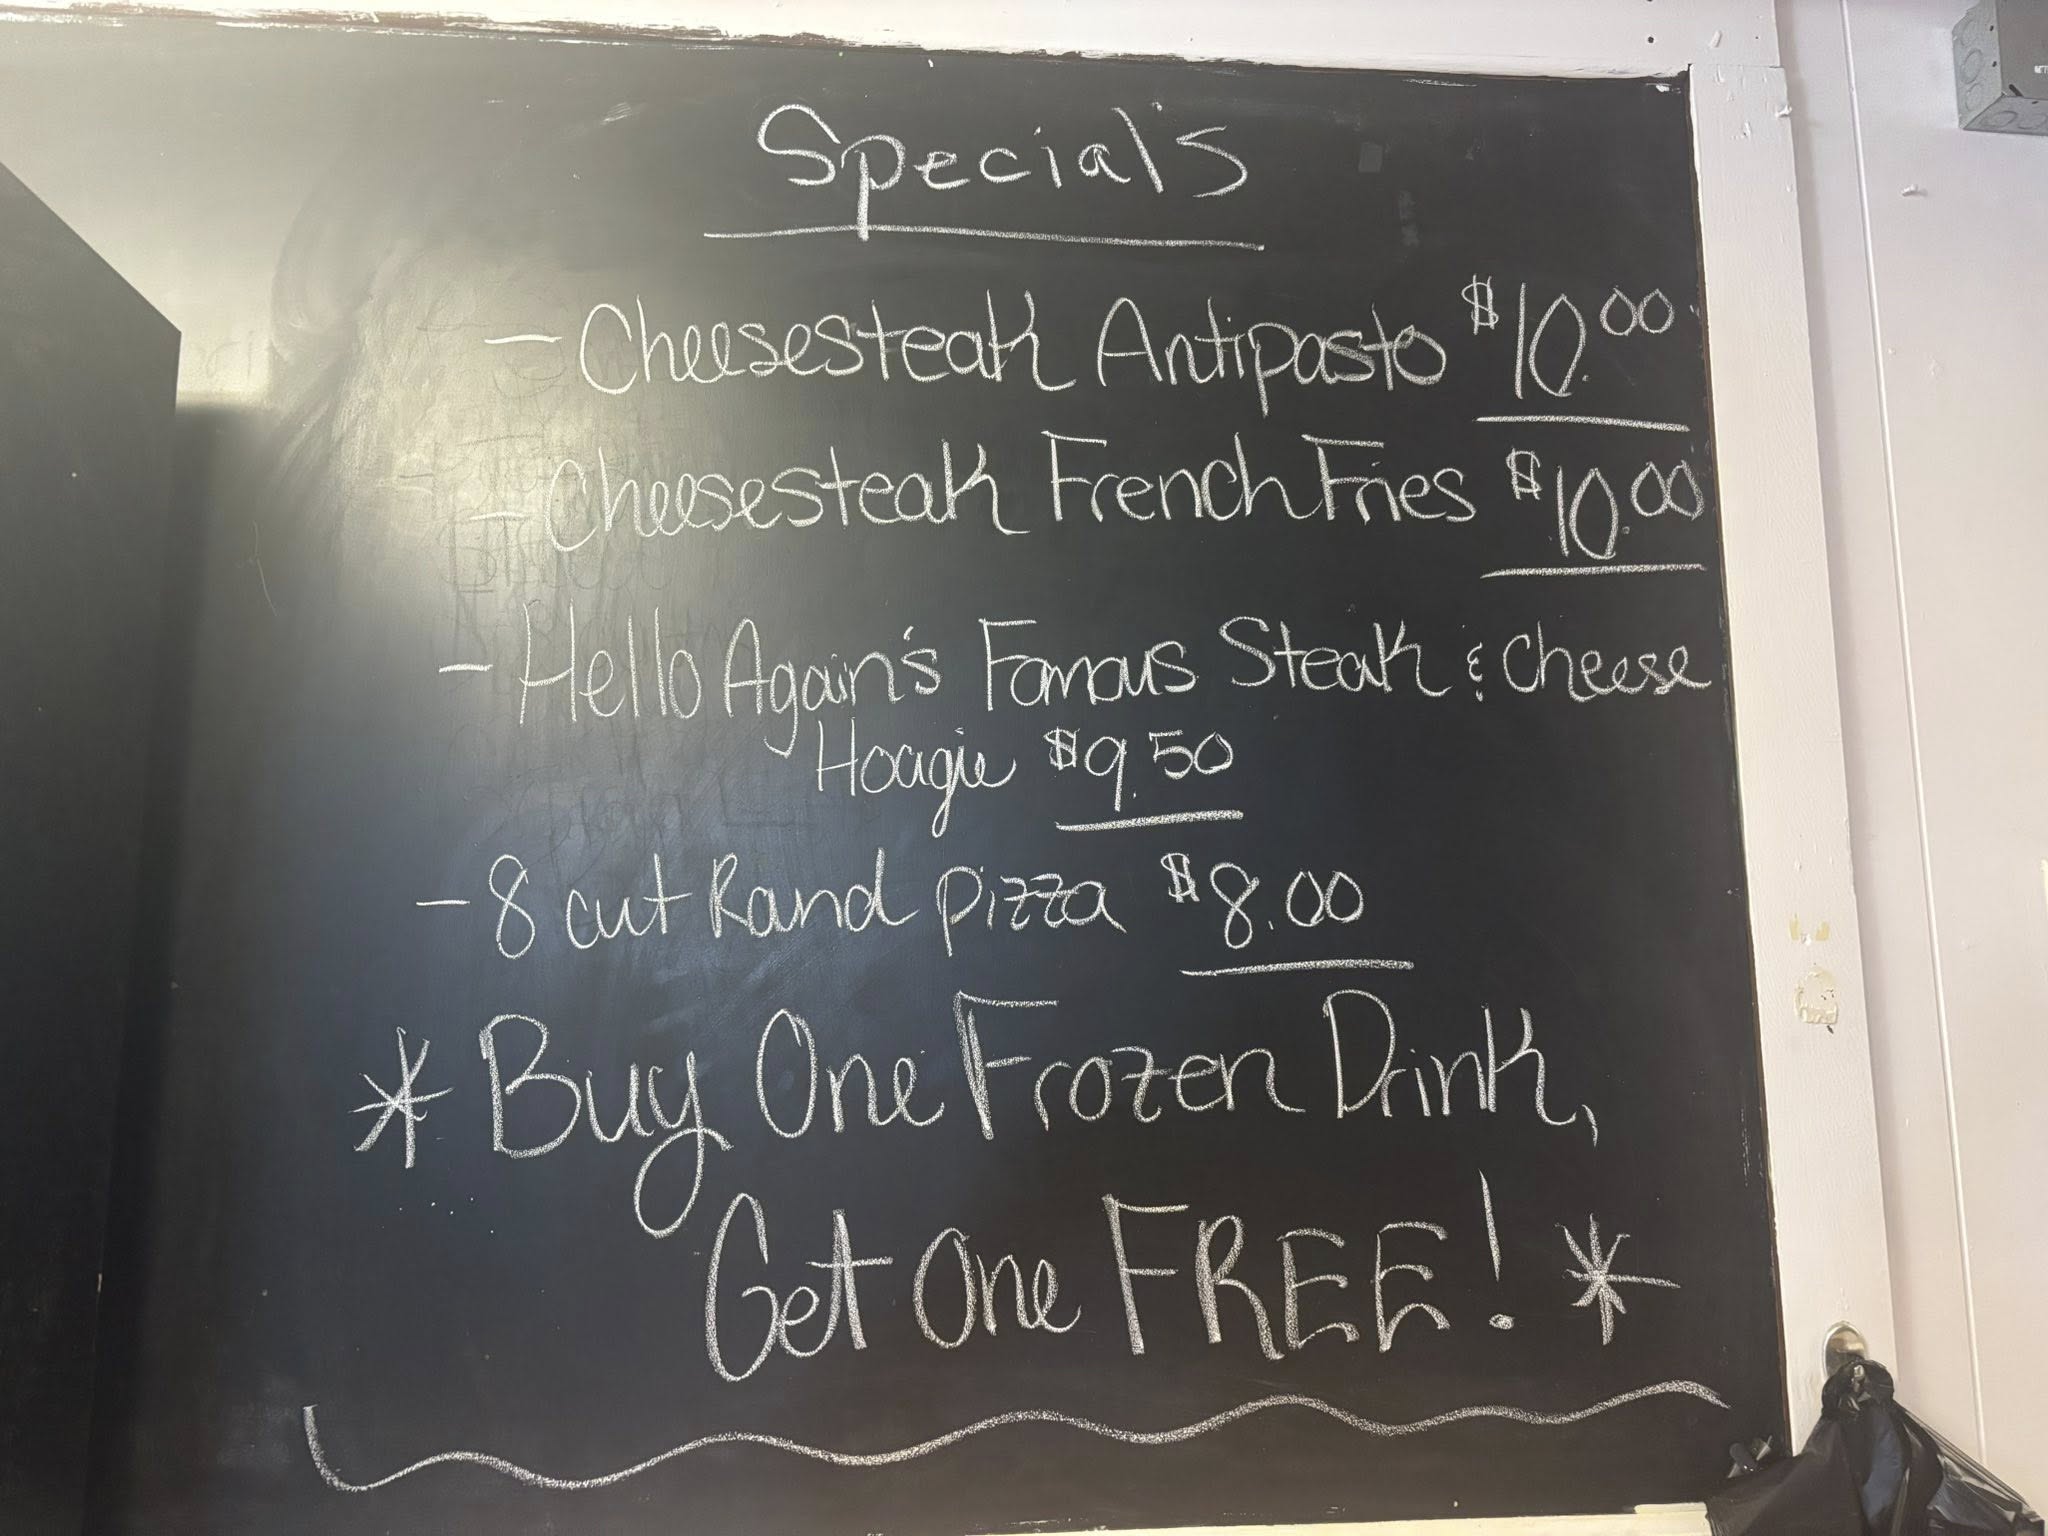 Special's
- Cheesesteak Antipasto $10.00
- Cheesesteak French Fries $10.00
- Hello Again's Famous Steak & Cheese
Hoagie $9.50
- 8 cut Rand pizza $8.00
* Buy One Frozen Drink,
Get One FREE! *